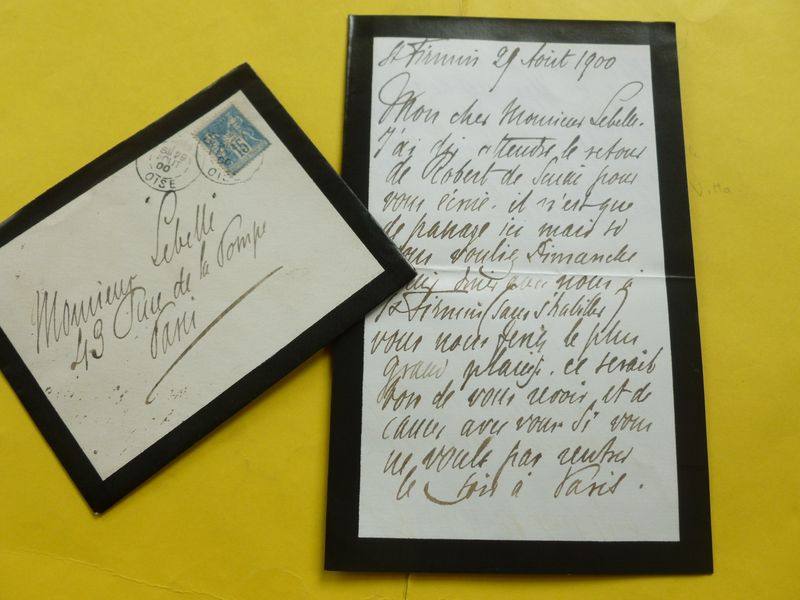 St Firmin 29 Aout 1900
Mon cher Monsieur Lebelle.
J'ai dû attendre le retour
de Robert de pour
vous écrire. il n'est que
de passage ici mais si
vous vouliez Dimanche
diner avec nous à
St Firmin (sans s'habiller)
vous nous feriez le plus
grand plaisir. ce serait
bon de vous revoir, et de
causer avec vous si vous
ne voulez pas rentrer
le soir à Paris.
15
OISE
Monsieur Lebelle
43 Rue de la Pompe
Paris